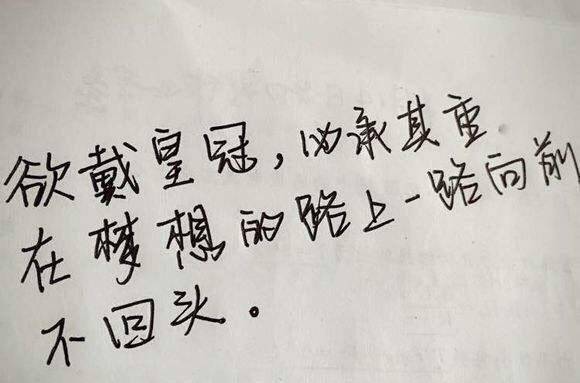 欲戴皇冠，必承其重.
在梦想的路上一路向前
不回头。